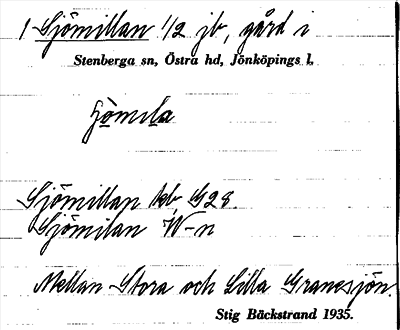 1 Sjömillan 1/2 jb, gård i
Stenberga sn, Östra hd, Jönköpings l.
Sjömillan kb, G28.
Sjömilan W-n
Mellan Stora och Lilla Granesjön.
Stig Bäckstrand 1935.